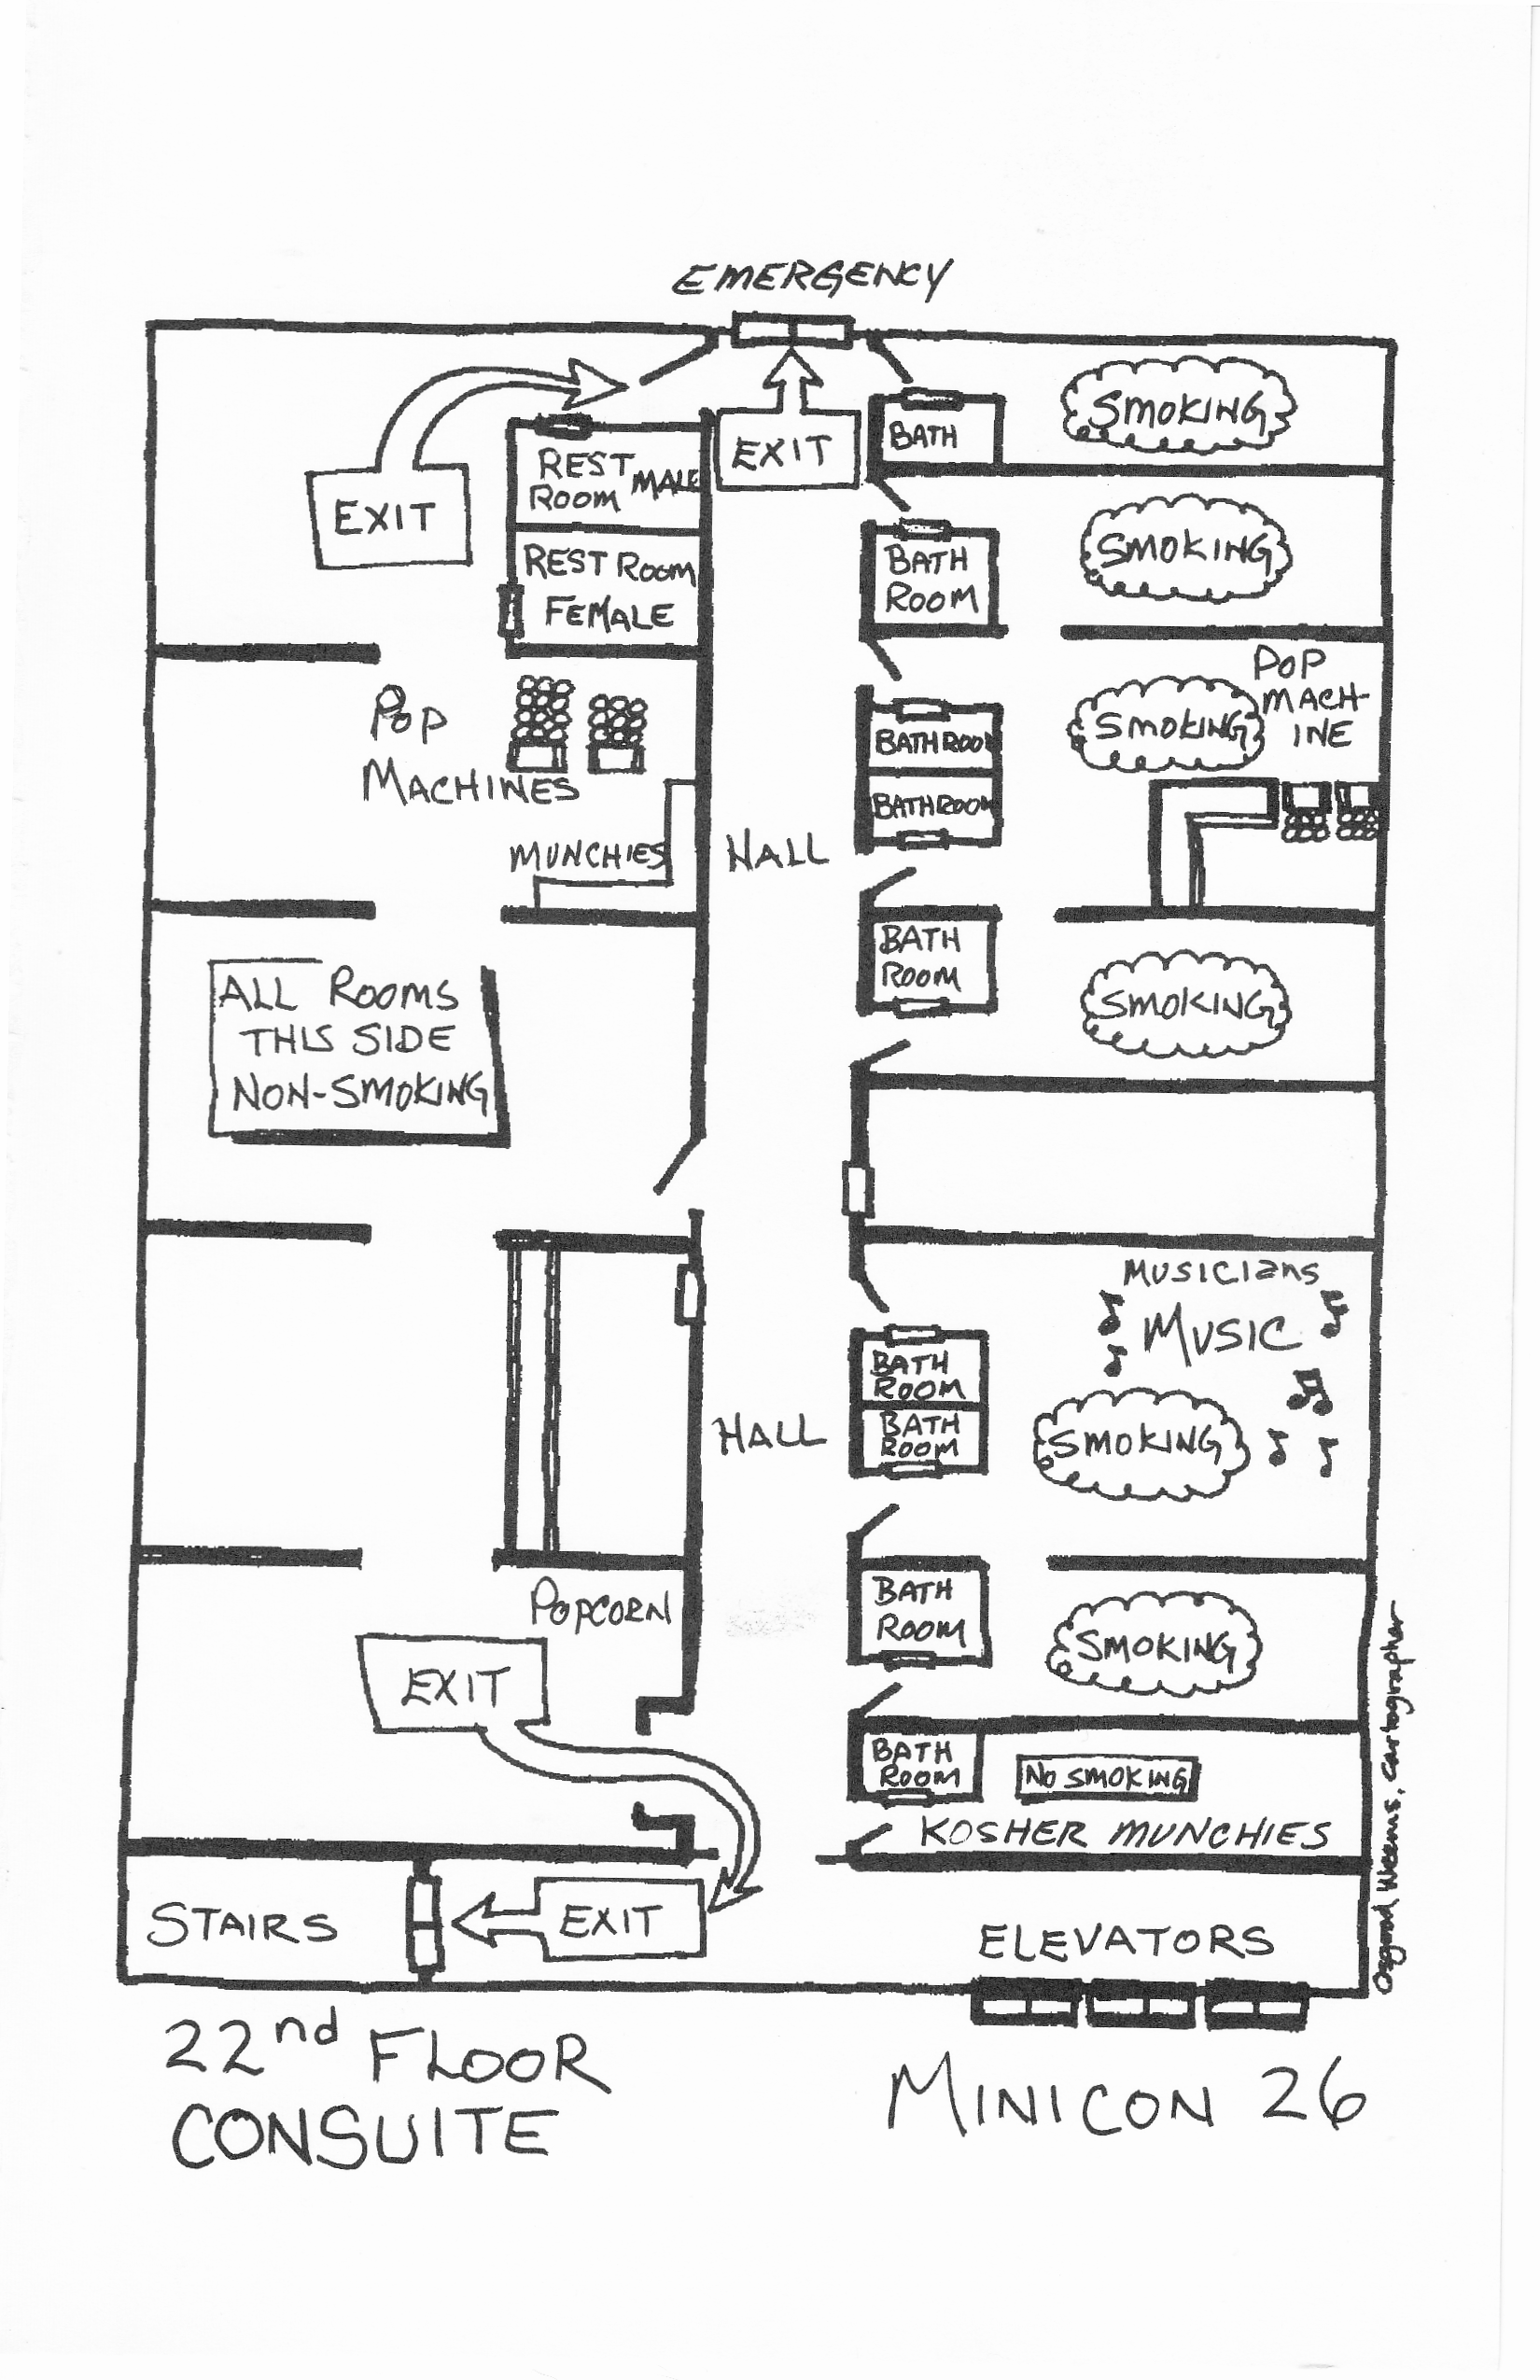 EMERGENCY
EXIT
EXIT
REST
ROOM MALE
REST ROOM
FEMALE
BATH
SMOKING
BATH
ROOM
SMOKING
POP
MACHINES
MUNCHIES
HALL
BATHROOM
BATHROOM
SMOKING
POP
MACH-
INE
ALL ROOMS
THIS SIDE
NON-SMOKING
BATH
ROOM
SMOKING
MUSICIANS
MUSIC
HALL
BATH
ROOM
BATH
ROOM
SMOKING
POPCORN
EXIT
BATH
ROOM
SMOKING
BATH
ROOM
NO SMOKING
KOSHER MUNCHIES
STAIRS
EXIT
ELEVATORS
Osgood, Weems, cartographer
22nd FLOOR
CONSUITE
MINICON 26